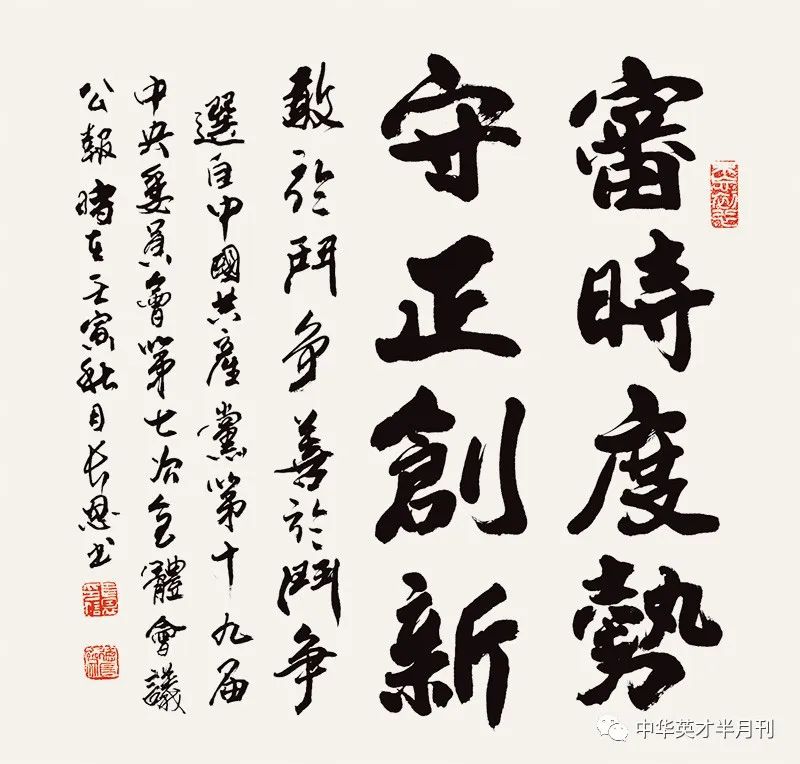 審時度勢
守正創新
敢於鬥争善於鬥争
選自中國共産黨第十九届
中央委員會第七次全體會議
公報時在壬寅秋月长恩书
中华英才半月刊